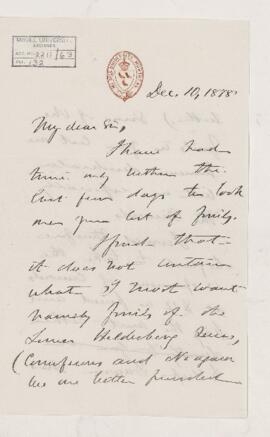 McGILL UNIVERSITY
ARCHIVES
ACC. NO. 2211/63
REF. 132
Dec. 10, 1878
My dear Sir,
I have had
time only within the
last few days to look
over your list of fossils.
I find that
it does not contain
what I most want
namely fossils of the
Lower Helderberg Series,
(Corniferous and Niagara
we are better